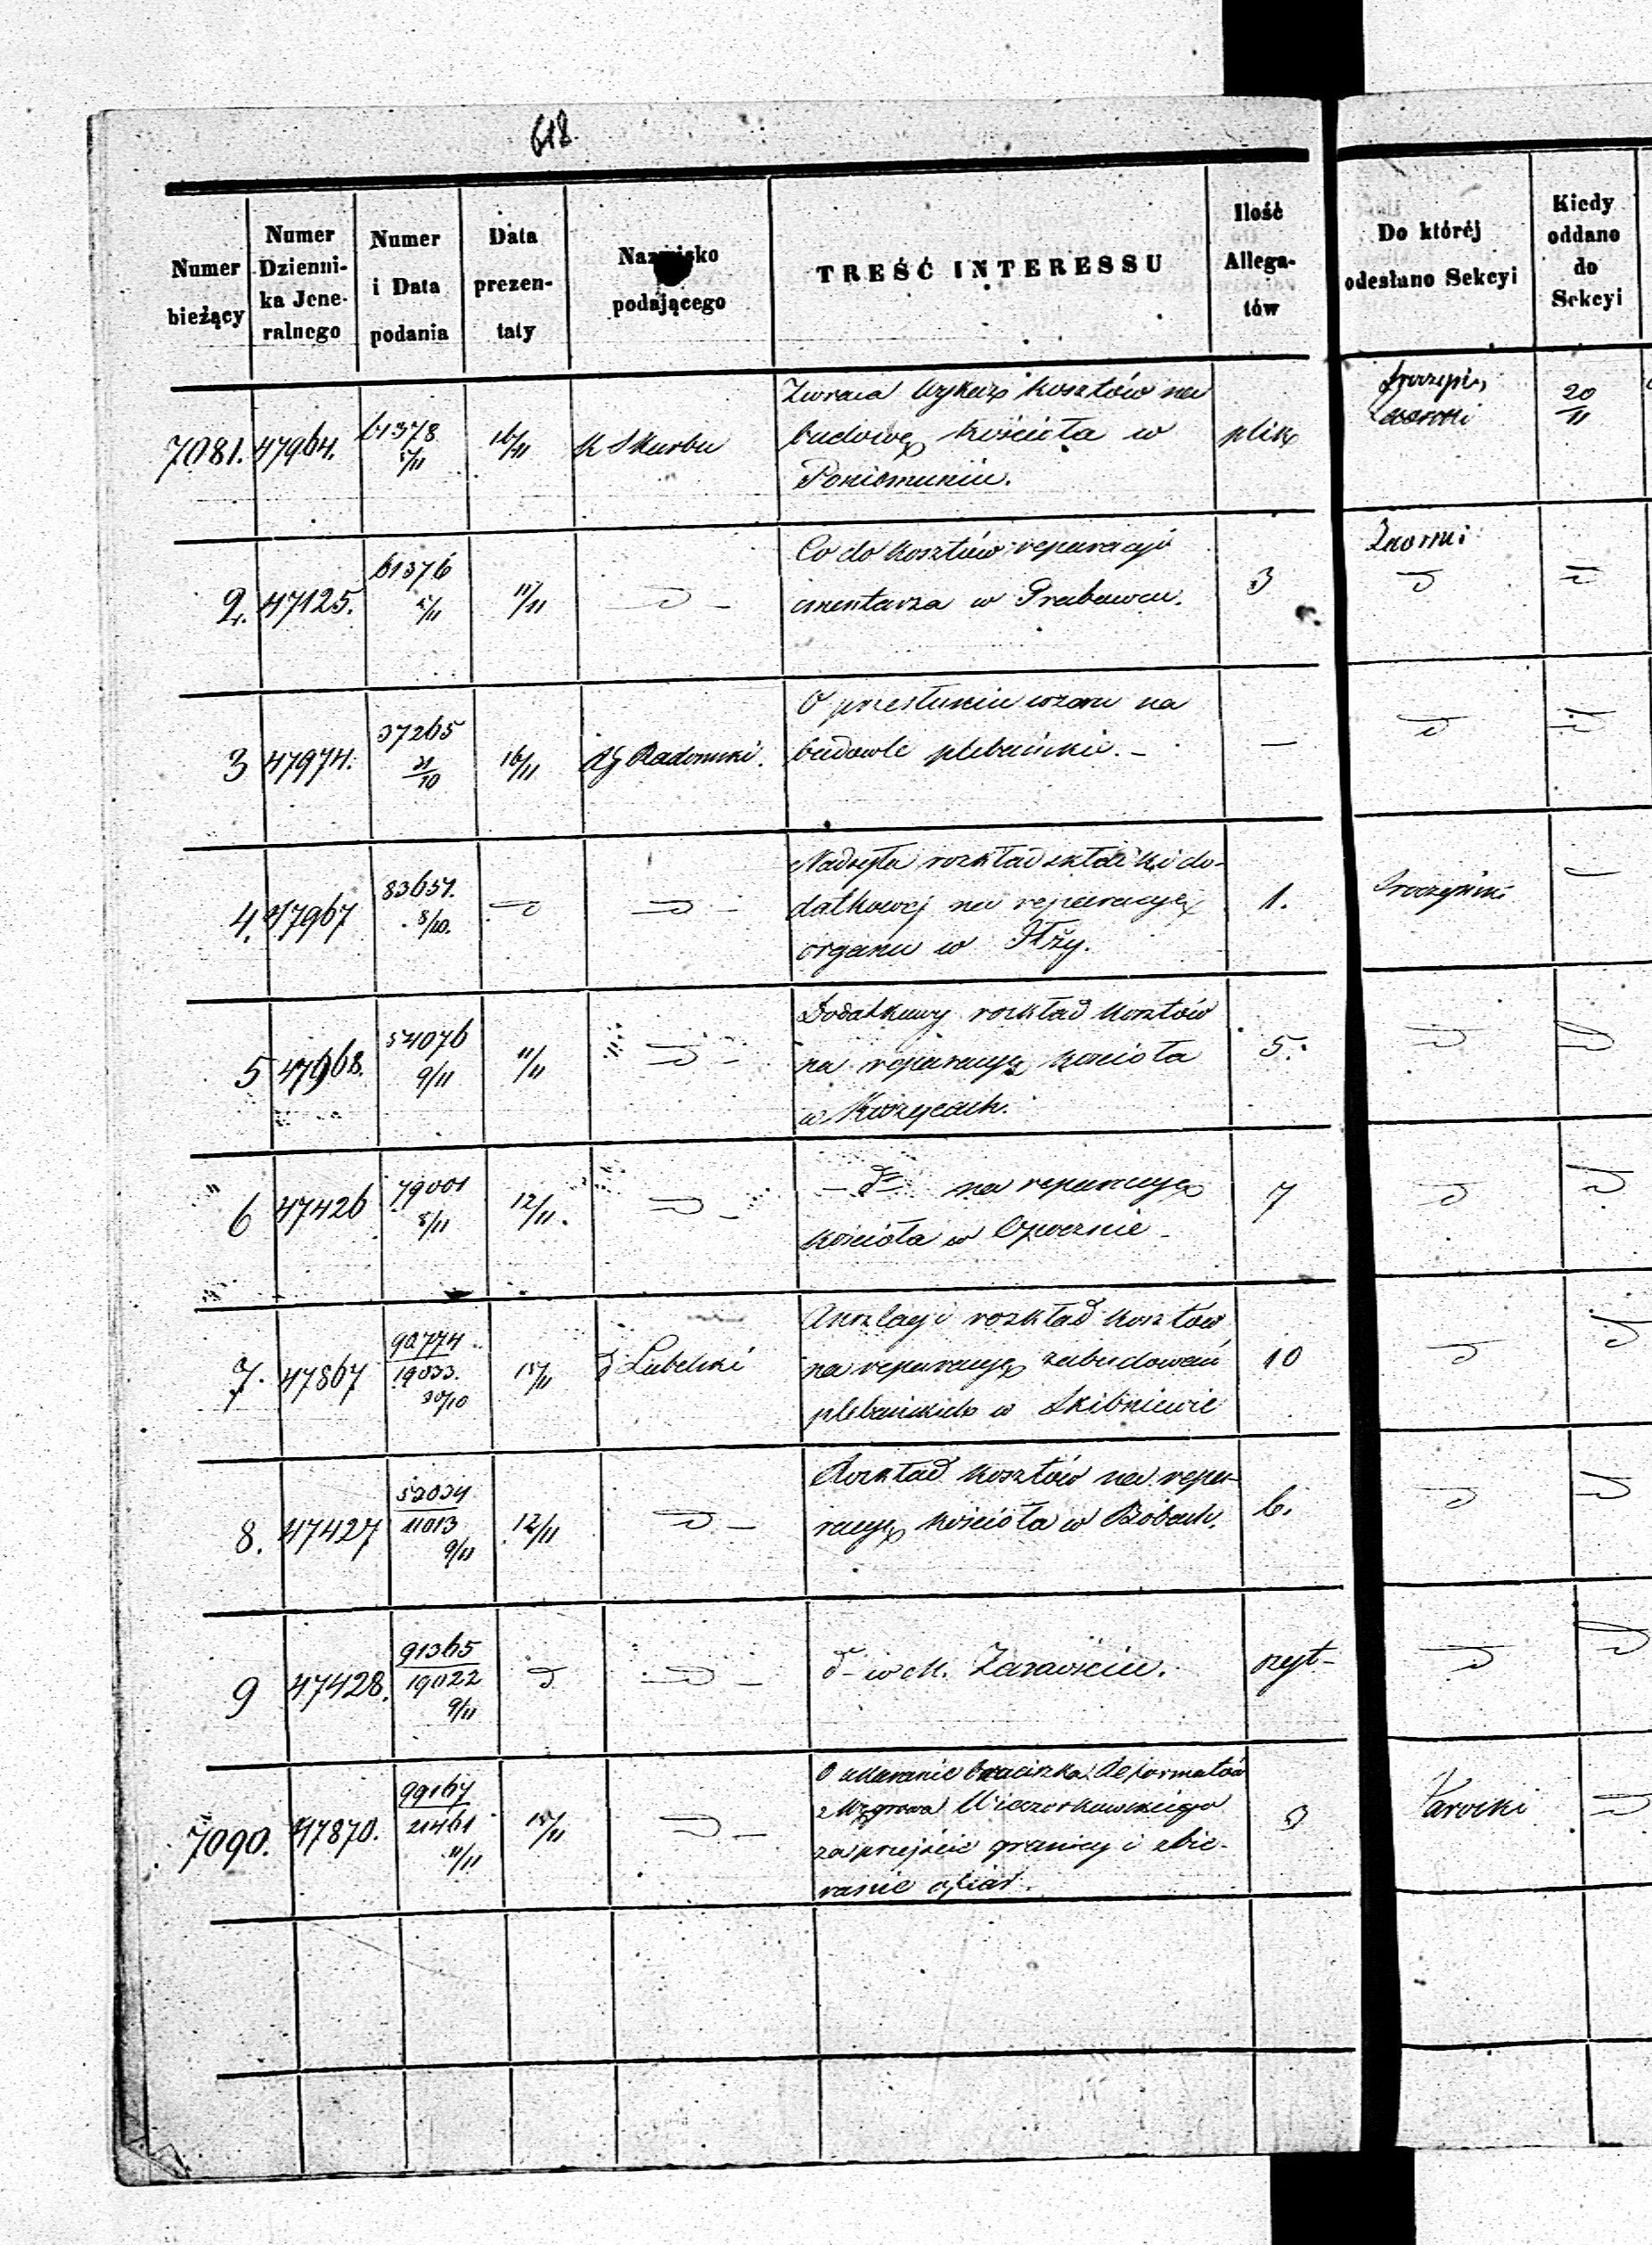 618.
Numer bieżący
Numer Dzienni-ka Jene-ralnego
Numer i Data podania
Data prezen-taty
Nazwisko podającego
TREŚĆ INTERESSU
Ilość Allega-tów
Do którėj odesłano Sekcyi
Kiedy oddano do Sekcyi
7081. 47964. 61378 5/11 16/11 K Skarbu
Zwraca wykaz kosztów na
budowę kościoła w
Poniemuniu.
plik
20/11
2. 47125. 61376 5/11 11/11 — d —
Co do kosztów reparacyi
cmentarza w Grabowcu.
3
d d
3 47974. 37265 31/10 16/11 RG Radomski.
O przesłanie wzoru na
budowle plebańskie. —
—
d d
4. 47967 83657. 8/10. d — d —
Nadsyła rozkład składki do-
datkowej na reparacyę
organu w Iłży.
1.
5 47968. 54076 9/11 11/11 — d —
Dodatkowy rozkład kosztów
na reparacyę kościoła
w
5.
d d
6 47426 79001 8/11 12/11. — d —
— d° — na reparacyę
kościoła w Opocznie —
7
d d
7. 47867 90774 19033. 30/10 15/11 d Lubelski
Anszlag i rozkład kosztów
na reparacyę zabudowań
plebańskich w Skibniewie
10
d d
8. 47427 53034 11013 9/11 12/11 — d —
Rozkład kosztów na repa-
racyę kościoła w Bobach.
6.
d d
9 47428. 91365 19022 9/11 d — d —
d — w M.
d d
7090. 47870. 99167 21461 11/11 15/11 — d —
O ukaranie braciszka Reformatów
z Węgrowa
za przejście granicy i zbie-
ranie ofiar.
3
d